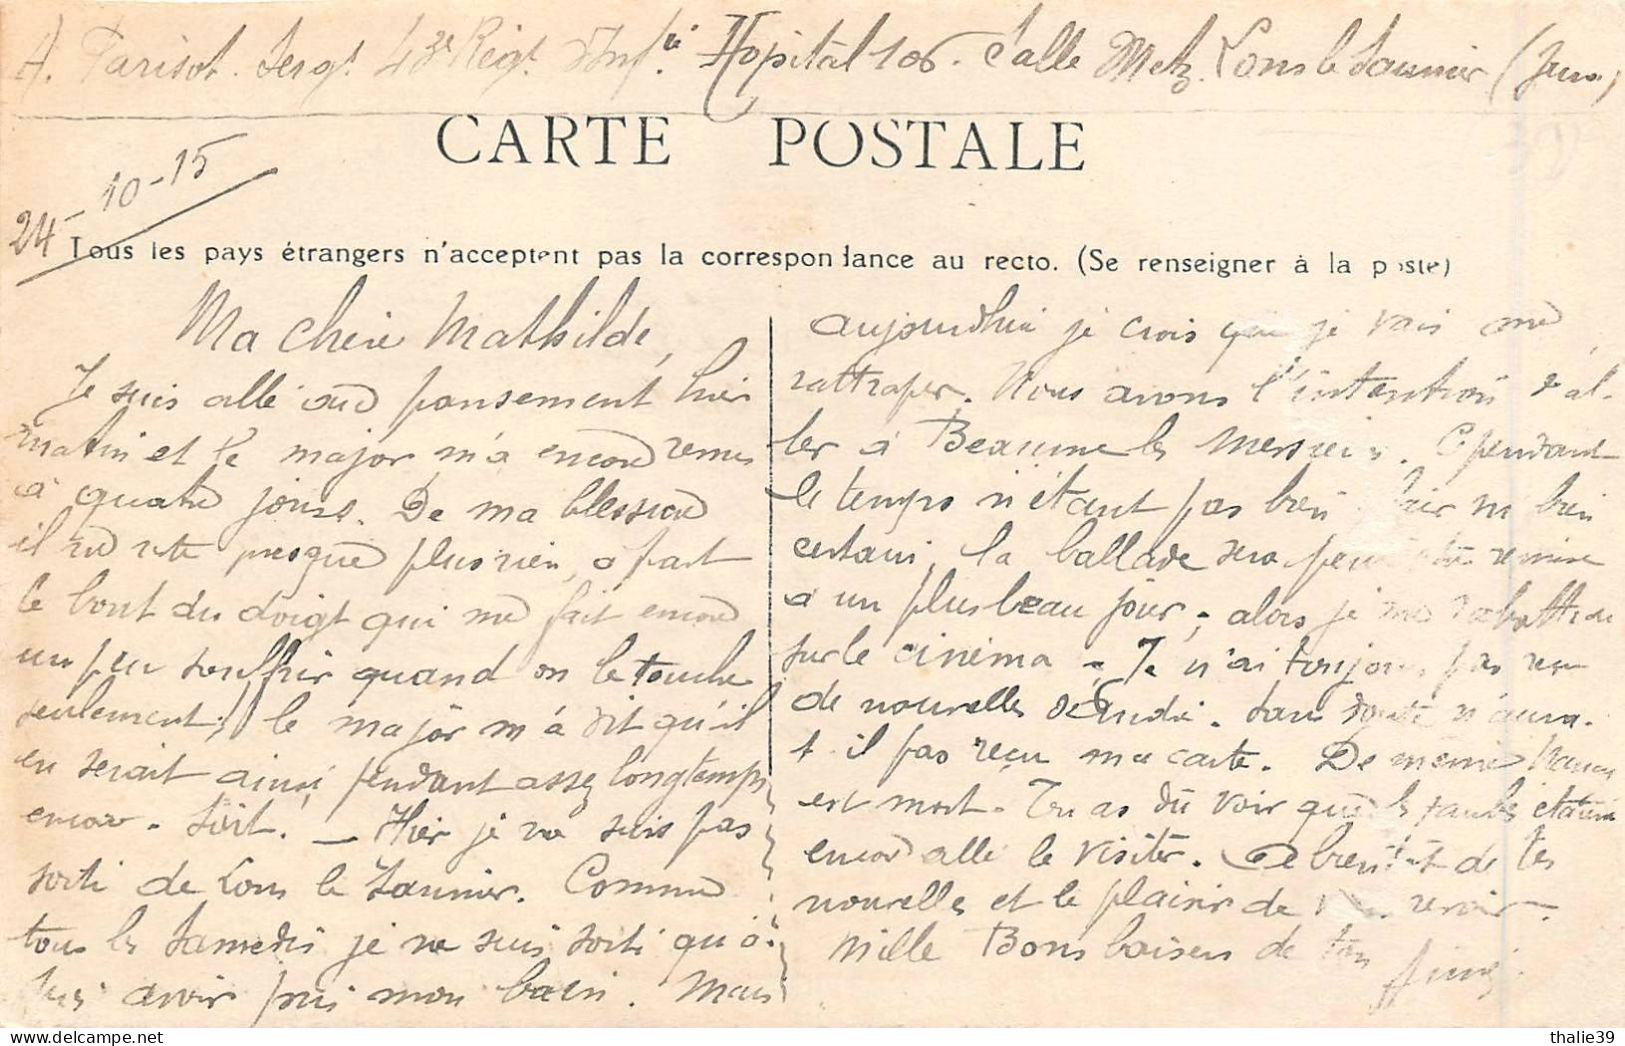 A. Parisot. Sergt 43e Régt d'Infie Hôpital 106. Salle Metz. Lons le Saunier (Jura)
CARTE POSTALE
24-10-15
Tous les pays étrangers n'acceptent pas la correspondance au recto. (Se renseigner à la poste)
Ma chère Mathilde,
Je suis allé au pansement hier
matin et le major m'a encore remis
à quatre jours. De ma blessure
il ne reste presque plus rien, à part
le bout du doigt qui me fait encore
un peu souffrir quand on le touche
seulement; le major m'a dit qu'il
en serait ainsi pendant assez longtemps
encore. Soit. — Hier je ne suis pas
sorti de Lons le Saunier. Comme
tous les samedis je ne suis sorti qu'à
avoir pris mon bain. Mais
aujourd'hui je crois que je vais me
rattraper. Nous avons l'intention d'al-
ler à Beaume les Messieurs. Cependant
le temps n'étant pas bien clair ni bien
certain, la ballade sera peut être remise
à un plus beau jour; alors je me rabattrai
sur le cinéma. Je n'ai toujours pas reçu
de nouvelles d'André. Sans doute n'aura-
t-il pas reçu ma carte. De même
est mort. Tu as dû voir que les étaient
encore allé le visiter. A bientôt de tes
nouvelles et le plaisir de revoir.
Mille Bons baisers de ton
thalie39